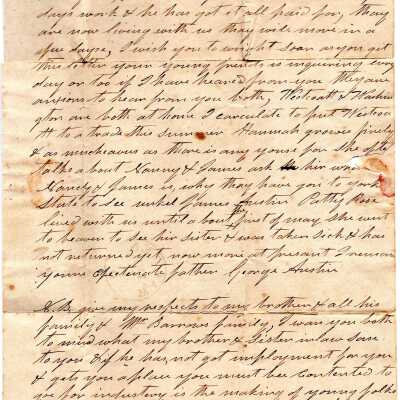 days work & he has got it all paid for, thay
are now living with us thay will move in a
few days, I wish you to wright soon as you get
this letter your young friends is inquiring every
day or too if I have heared from you they are
anxious to hear from you both, Westcott & Washin
gton are both at home I carculate to put Westcott
tt to a trade this summer Hannah grows finely
& as mischeavus as there is any youse for she ofte
talks about Nancy & James ask hir whare
Nancy & James is, why thay have gon to york
State to see unkel James Austin Patty Rose
lived with us until about first of may She went
to beaver to see hir Sister & was taken sick & has
not returned yet, now more at present I remain
youre afectenate father George Austin
N.B. give my respects to my brother & all his
family & Mr Barrows family, I want you both
to mind what my brother & Sister inlaw says
to you & if he has not got imployment for you
& gets you a place you must bee contented to
goe for industry is the making of young folks